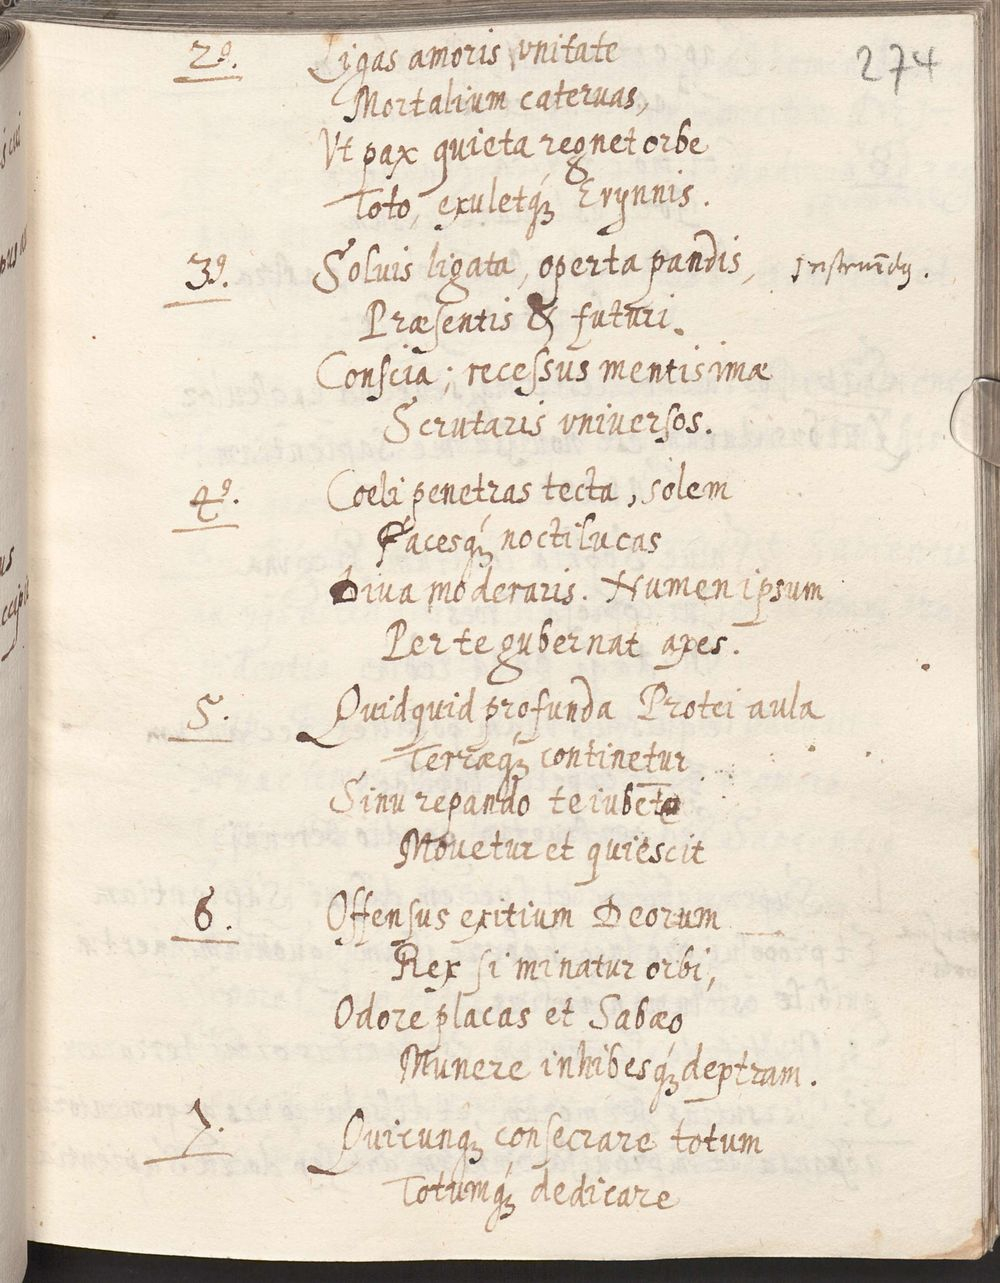 274
2º. Ligas amoris vnitate
Mortalium cateruas,
Vt pax quieta regnet orbe
Toto, exuletq́ꝫ Erynnis.
3º. Soluis ligata, operta pandis,
Præsentis & futuri.
Conscia; recessus mentis imæ
Scrutaris vniuersos.
4º. Coeli penetras tecta, solem
Facesq́ꝫ noctilucas
Diua moderaris. Numen ipsum
Per te gubernat axes.
5. Quidquid profunda Protei aula
Terræq́ꝫ continetur
Sinu repando te iubete
Mouetur et quiescit
6. Offensus exitium Deorum
Rex si minatur orbi,
Odore placas et Sabæo
Munere inhibesq́ꝫ dextram.
7. Quicunqꝫ consecrare totum
Totumq́ꝫ dedicare